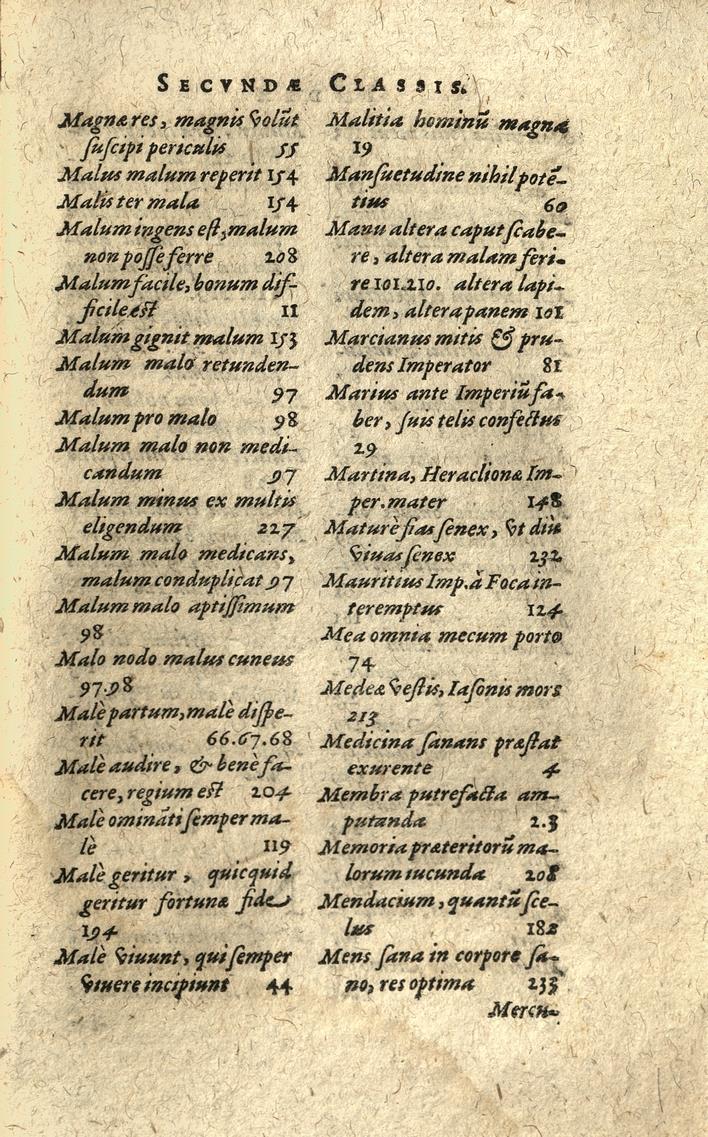 SECVNDÆ CLASSIS.
Magnæ res, magnis volũt
ſuſcipi periculis 55
Malus malum reperit 154
Malis ter mala 154
Malum ingens eſt, malum
non poſſe ferre 208
Malum facile, bonum dif-
ficile eſt 11
Malum gignit malum 153
Malum malo retunden-
dum 97
Malum pro malo 98
Malum malo non medi-
candum 97
Malum minus ex multis
eligendum 227
Malum malo medicans,
malum conduplicat 97
Malum malo aptiſſimum
98
Malo nodo malus cuneus
97.98
Malè partum, malè diſpe-
rit 66.67.68
Malè audire, & benè fa-
cere, regium eſt 204
Malè ominãti ſemper ma-
lè 119
Malè geritur, quicquid
geritur fortunæ fide
194
Malè viuunt, qui ſemper
viuere incipiunt 44
Malitia hominũ magna
19
Manſuetudine nihil potẽ-
tius 60
Manu altera caput ſcabe-
re, altera malam feri-
re 101.210. altera lapi-
dem, altera panem 101
Marcianus mitis & pru-
dens Imperator 81
Marius ante Imperiũ fa-
ber, ſuis telis confectus
29
Martina, Heraclionæ Im-
per. mater 148
Maturè fias ſenex, vt diù
viuas ſenex 232
Mauritius Imp. à Foca in-
teremptus 124
Mea omnia mecum porto
74
Medeæ veſtis, Iaſonis mors
213
Medicina ſanans præſtat
exurente 4
Membra putrefacta am-
putanda 2.3
Memoria præteritorũ ma-
lorum iucunda 208
Mendacium, quantũ ſce-
lus 182
Mens ſana in corpore ſa-
no, res optima 233
Mercu-